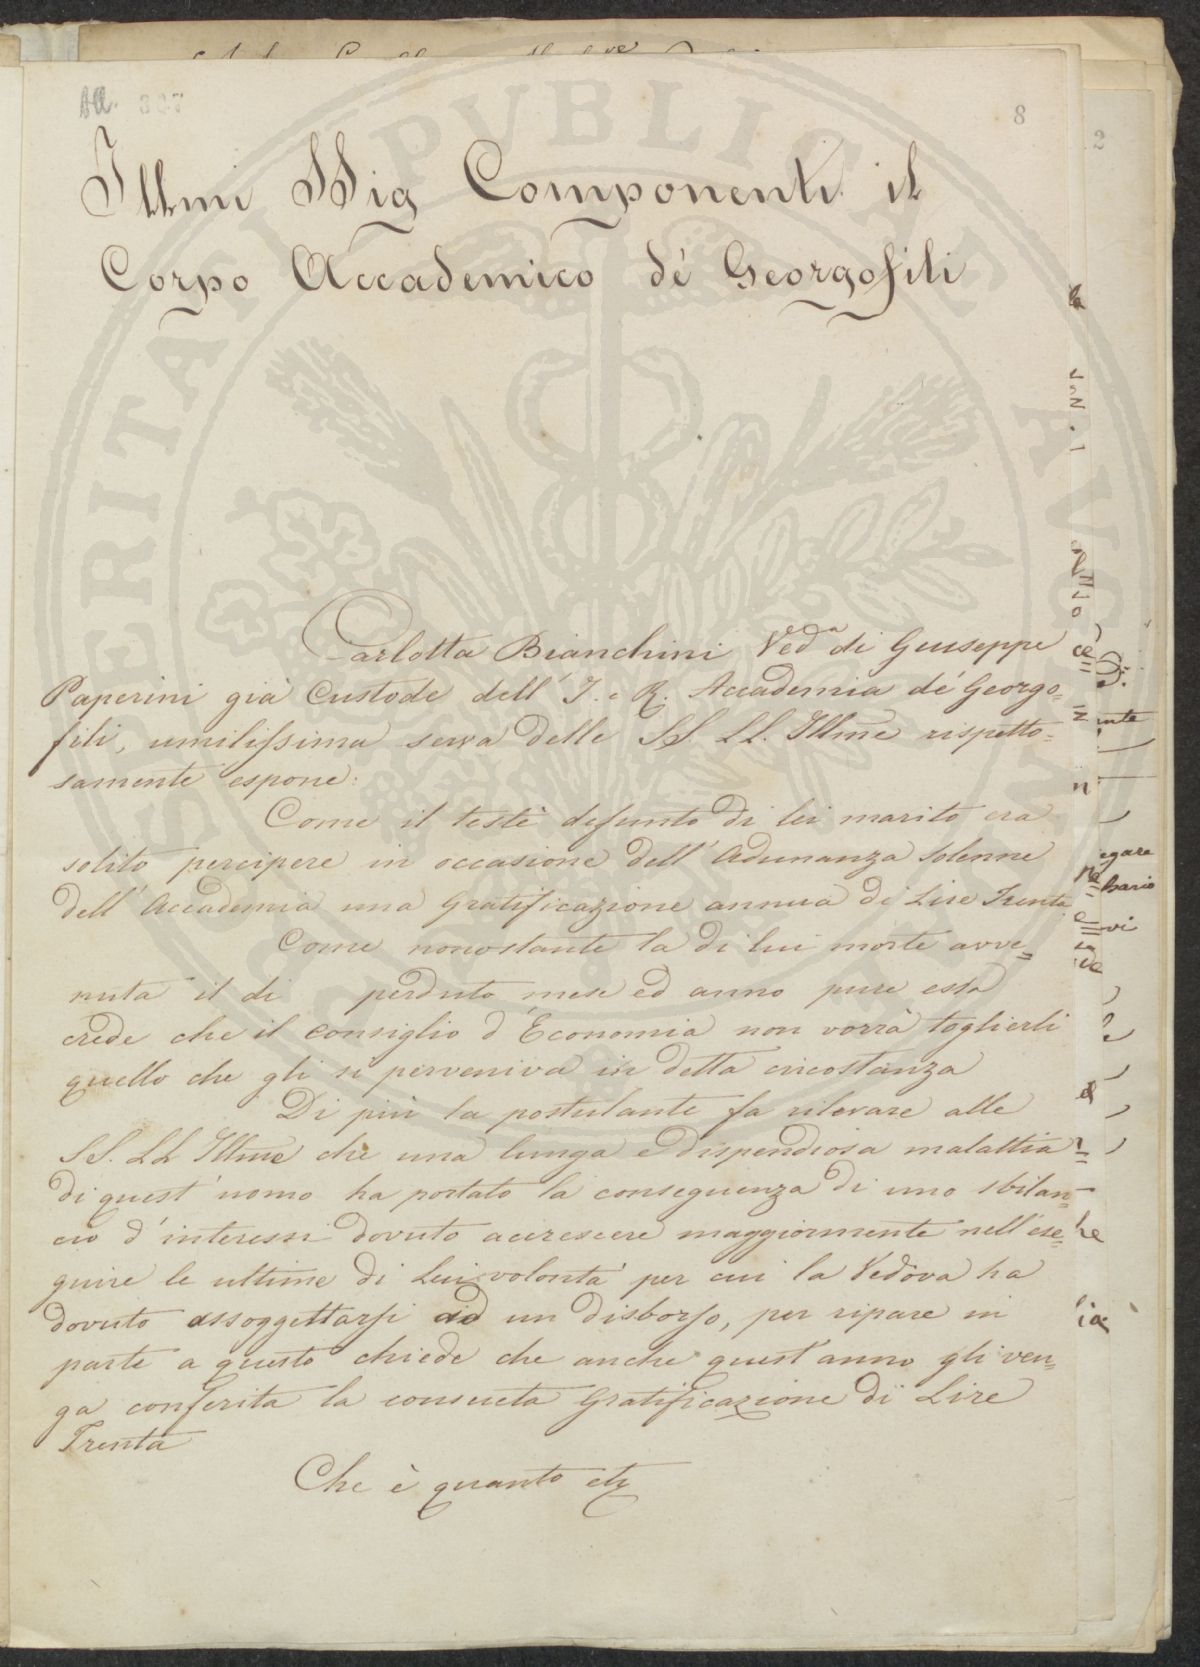 All. 327
8
Illmi SSig Componenti il
Corpo Accademico dè Georgofili
Carlotta Bianchini Veda di Giuseppe
Paperini già Custode dell' I. e R. Accademia dè Georgo=
fili, umilissima serva delle SS. LL. Illme rispetto=
samente espone:
Come il testè defunto di lei marito era
solito percipere in occasione dell' adunanza solenne
dell' Accademia una Gratificazione annua di Lire Trenta
Come nonostante la di lui morte avve=
nuta il di perduto mese ed anno pure esta
crede che il consiglio d'Economia non vorrà toglierli
quello che gli si perveniva in detta circostanza
Di più la postulante fa rilevare alle
SS. LL Illme che una lunga e dispendiosa malattia
di quest' uomo ha portato la conseguenza di uno sbilan=
cio d'interessi dovuto accrescere maggiormente nell'ese=
guire le ultime di Lui volontà per cui la Vedova ha
dovuto assoggettarsi ad un disborso, per ripare in
parte a questo chiede che anche quest'anno gli ven=
ga conferita la consueta Gratificazione di Lire
Trenta
Che è quanto etc
2